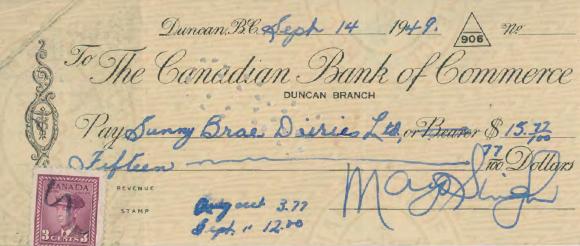 Duncan, B.C. Sept 14 1949. 906 No
To The Canadian Bank of Commerce
DUNCAN BRANCH
Pay Sunny Brae Dairies Ltd, or Bearer $ 15.77/100
Fifteen 77/100 Dollars
Mayo Singh
REVENUE
STAMP
August 3.77
Sept. " 12.00
CANADA
3 CENTS 3